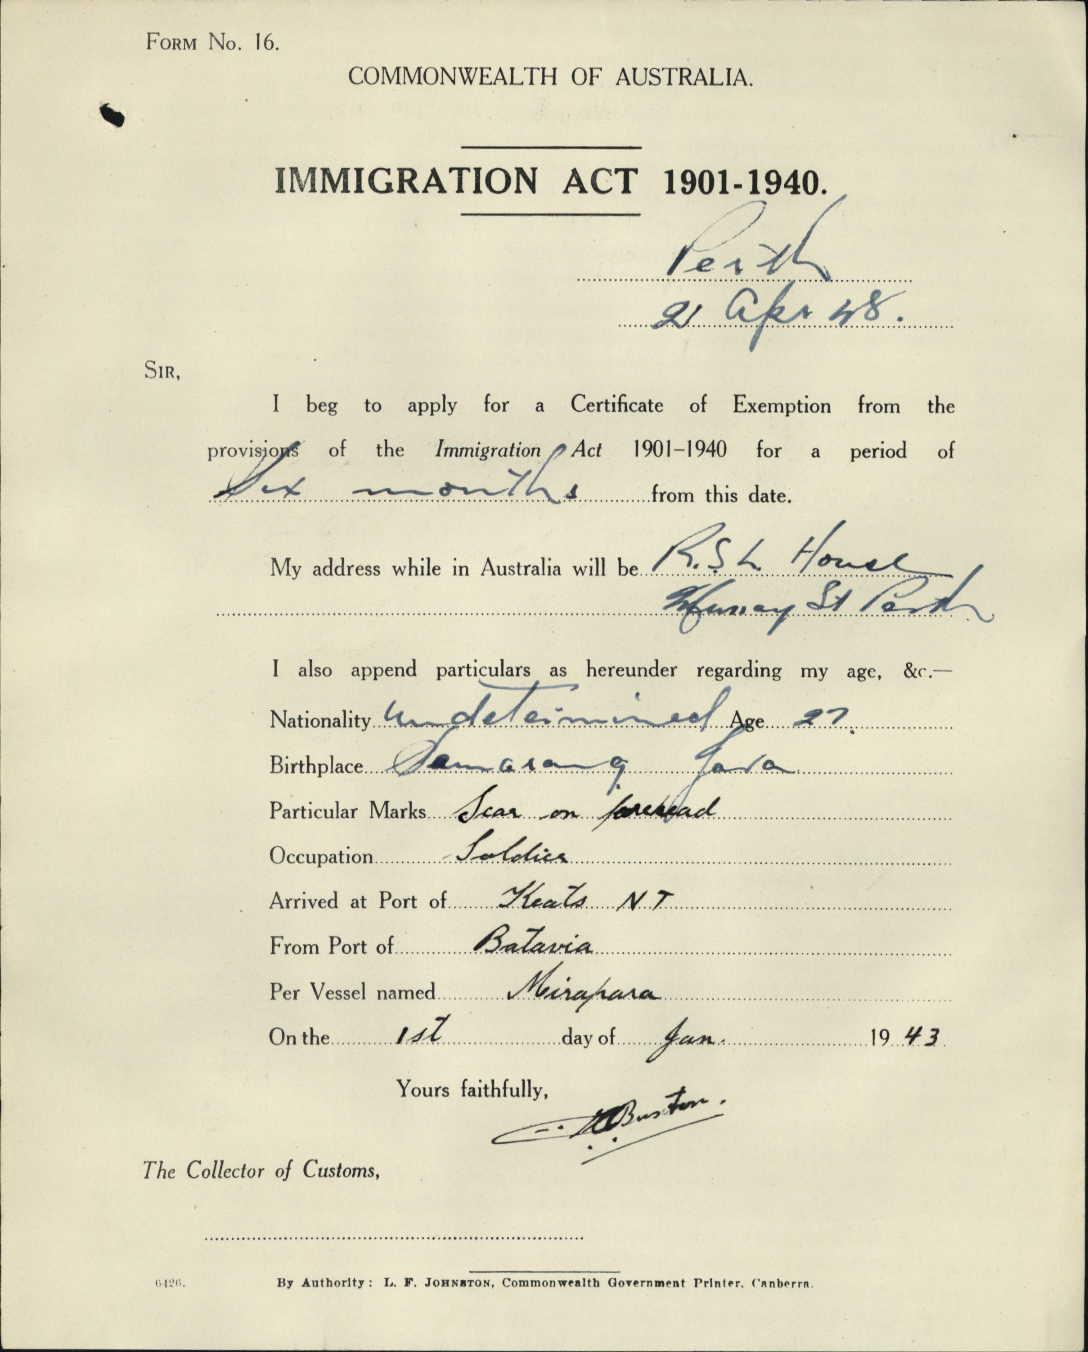 FORM No. 16.
COMMONWEALTH OF AUSTRALIA.
IMMIGRATION ACT 1901-1940.
Perth
21 Apr 48.
SIR,
I beg to apply for a Certificate of Exemption from the
provisions of the Immigration Act 1901–1940 for a period of
Six months from this date.
My address while in Australia will be R.S.L. House
Murray St Perth
I also append particulars as hereunder regarding my age, &c.—
Nationality undetermined Age 27.
Birthplace Samarang Java
Particular Marks Scar on forehead
Occupation Soldier
Arrived at Port of Keats NT
From Port of Batavia
Per Vessel named Mirapara
On the 1st day of Jan. 1943
Yours faithfully,
Buxton.
The Collector of Customs,
6426.
By Authority: L. F. JOHNSTON, Commonwealth Government Printer, Canberra.